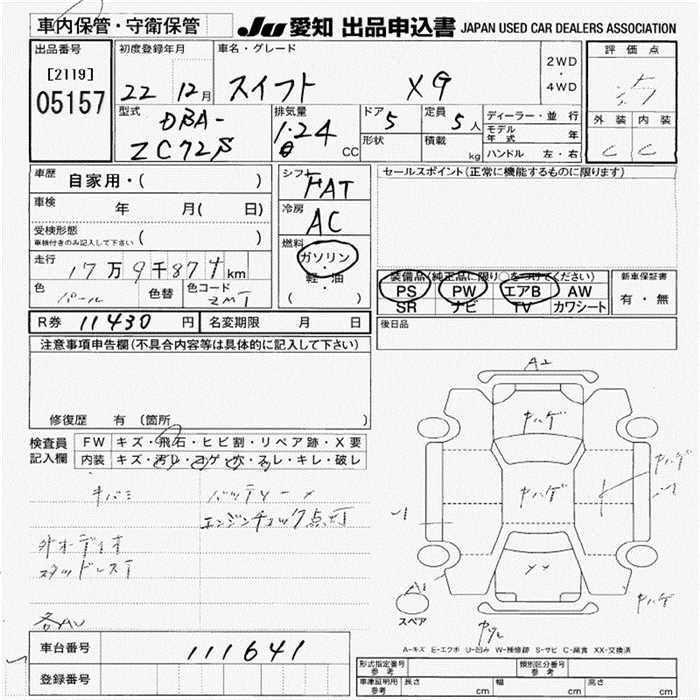 車内保管・守衛保管
JU 愛知 出品申込書 JAPAN USED CAR DEALERS ASSOCIATION
出品番号 初度登録年月 車名・グレード 2WD ・ 4WD 評価点
[2119]
05157
22 12月 スイフト XG
型式 DBA-
ZC72S
排気量 1.24 CC
ドア 5
形状
定員 5人
積載 kg
ディーラー・並行
モデル年式 年
ハンドル 左・右
外装 内装
C C
車歴 自家用・( )
車検 年 月( 日)
受検形態
車検付きのみ記入して下さい ( )
走行 17万9千877km
色 パール 色替 色コード
シフト FAT
冷房 AC
燃料 ガソリン
・
軽・油
( )
セールスポイント(正常に機能するものに限ります)
装備品(純正品に限り○をつけてください)
PS PW エアB AW
SR ナビ TV カワシート
新車保証書
有・無
R券 11430 円 名変期限 月 日
後日品
注意事項申告欄(不具合内容等は具体的に記入して下さい)
修復歴 有(箇所 )
検査員
記入欄
FW キズ・飛石・ヒビ割・リペア跡・X要
内装 キズ・汚れ・コゲ・穴・スレ・キレ・破レ
キバミ バッテリー〆
エンジンチェック点灯
外オーディオ
スタッドレス
A2
ヤハゲ
ヤハゲ
ヤハゲ
ヤハゲ
A1
スペア
A-キズ E-エクボ U-凹み W-補修跡 S-サビ C-腐食 XX-交換済
車台番号 111641
登録番号
形式指定番号
参考
類別区分番号
参考
車庫証明用
参考
長さ cm 幅 cm 高さ cm